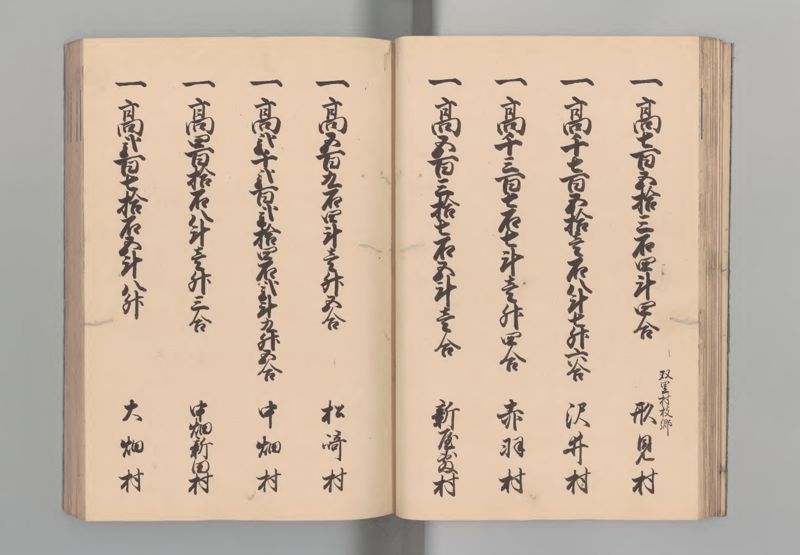 一高七百五拾三石四斗四合
双里村枝郷
形見村
一高千七百五拾壱石八斗七升六合
沢井村
一高千三百七石七斗壱升四合
赤羽村
一高五百三拾七石五斗壱合
新屋敷村
一高五百九石四斗壱升五合
松崎村
一高弐千弐百弐拾四石弐斗九升五合
中畑村
一高四百拾石八斗壱升三合
中畑新田村
一高弐百七拾石五斗八升
大畑村